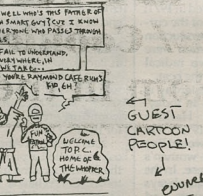 WELL WHO'S THIS FATHER OF
SMART GUY? CUZ I KNOW
WHO PASSES THROUGH
FAIL TO UNDERSTAND,
WHERE, IN
TAKE...
YOU'RE RAYMOND CAFE RICH'S
KID, EH
FUN
WELCOME
TO
HOME OF
THE WHOPPER
GUEST
CARTOON
PEOPLE!